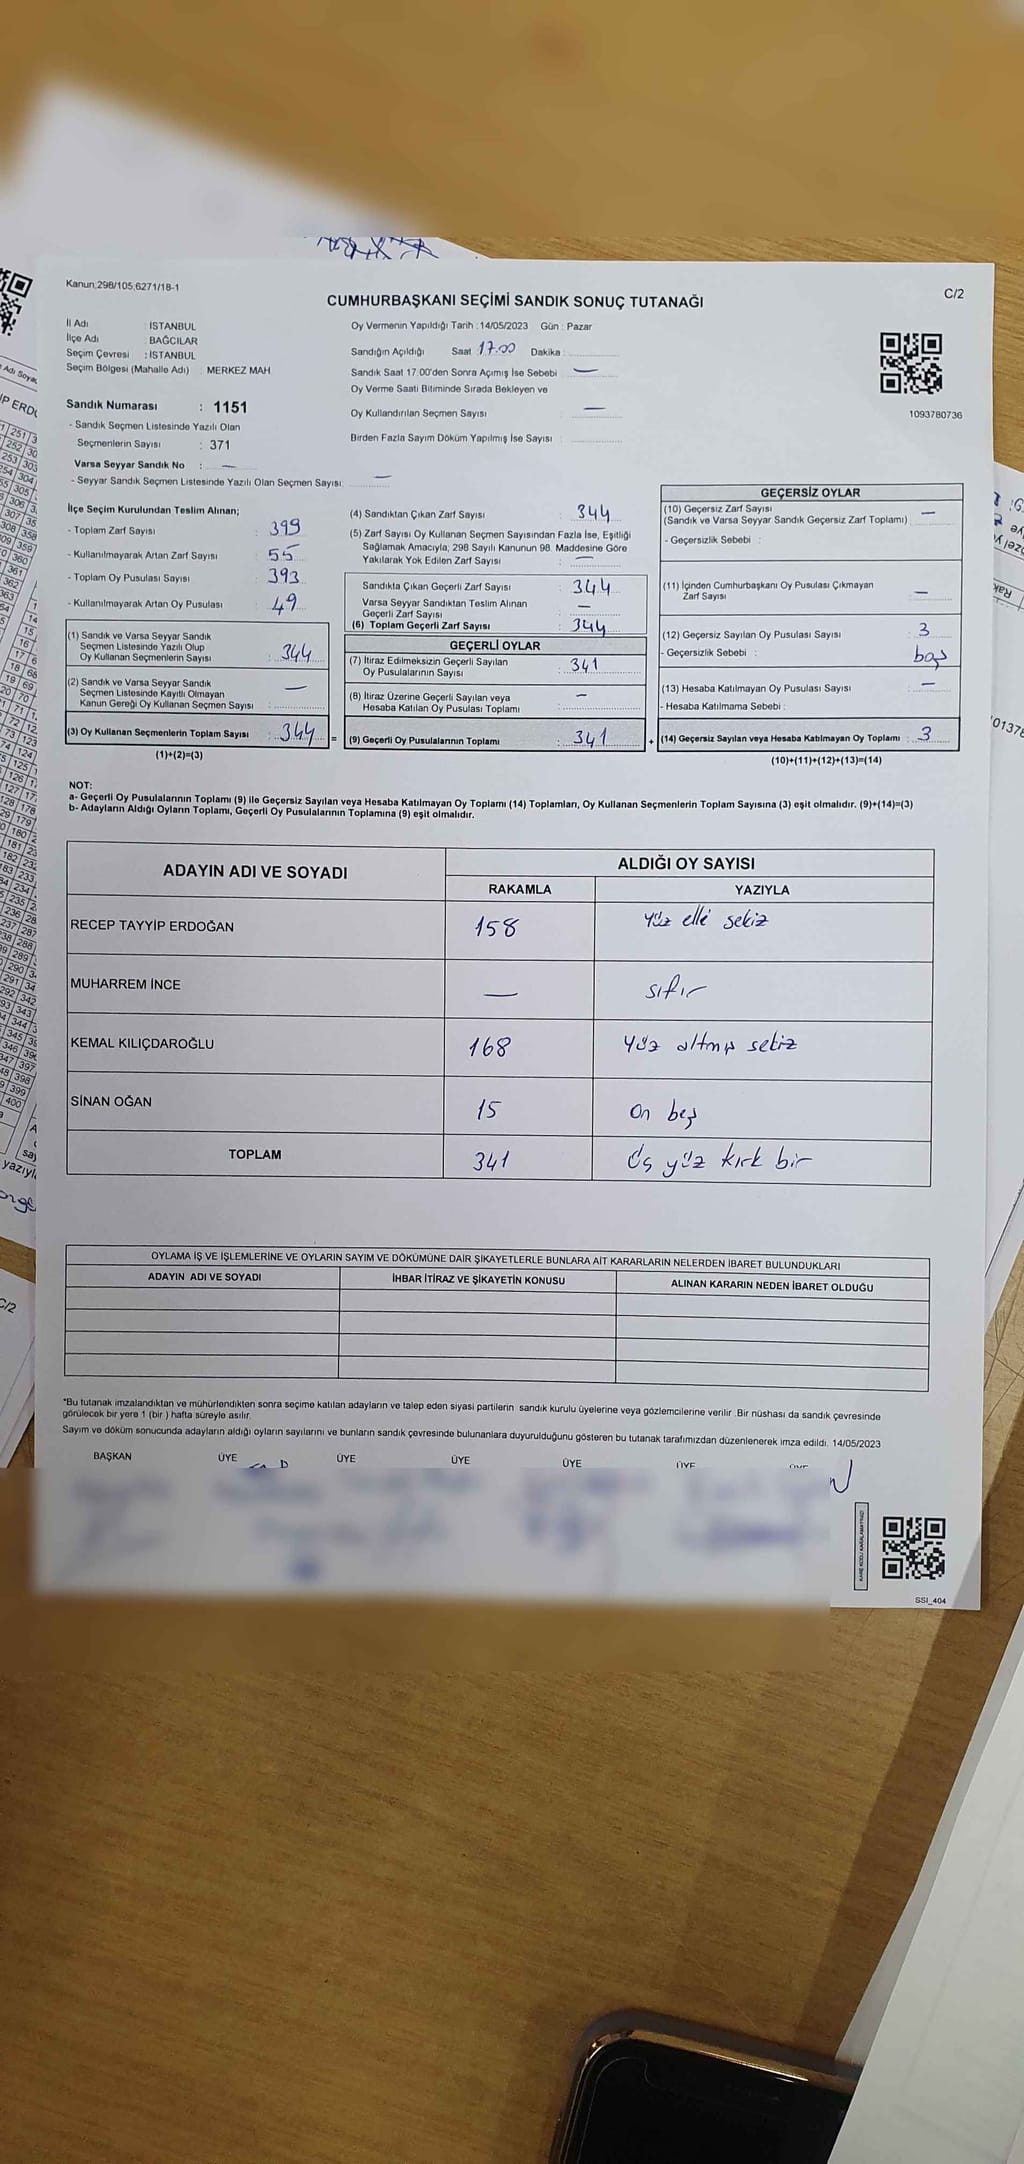 Kanun,298/105,6271/18-1
C/2
CUMHURBAŞKANI SEÇİMİ SANDIK SONUÇ TUTANAĞI
İl Adı : İSTANBUL
İlçe Adı : BAĞCILAR
Seçim Çevresi : İSTANBUL
Seçim Bölgesi (Mahalle Adı) : MERKEZ MAH
Sandık Numarası : 1151
- Sandık Seçmen Listesinde Yazılı Olan
Seçmenlerin Sayısı : 371
Varsa Seyyar Sandık No : —
- Seyyar Sandık Seçmen Listesinde Yazılı Olan Seçmen Sayısı: —
Oy Vermenin Yapıldığı Tarih : 14/05/2023 Gün : Pazar
Sandığın Açıldığı Saat 17.00 Dakika :
Sandık Saat 17.00'den Sonra Açımış İse Sebebi : —
Oy Verme Saati Bitiminde Sırada Bekleyen ve
Oy Kullandırılan Seçmen Sayısı : —
Birden Fazla Sayım Döküm Yapılmış İse Sayısı :
1093780736
İlçe Seçim Kurulundan Teslim Alınan;
- Toplam Zarf Sayısı : 399
- Kullanılmayarak Artan Zarf Sayısı : 55
- Toplam Oy Pusulası Sayısı : 393
- Kullanılmayarak Artan Oy Pusulası : 49
(1) Sandık ve Varsa Seyyar Sandık
Seçmen Listesinde Yazılı Olup
Oy Kullanan Seçmenlerin Sayısı : 344
(2) Sandık ve Varsa Seyyar Sandık
Seçmen Listesinde Kayıtlı Olmayan
Kanun Gereği Oy Kullanan Seçmen Sayısı : —
(3) Oy Kullanan Seçmenlerin Toplam Sayısı : 344
(1)+(2)=(3)
(4) Sandıktan Çıkan Zarf Sayısı : 344
(5) Zarf Sayısı Oy Kullanan Seçmen Sayısından Fazla İse, Eşitliği
Sağlamak Amacıyla; 298 Sayılı Kanunun 98. Maddesine Göre
Yakılarak Yok Edilen Zarf Sayısı : —
Sandıkta Çıkan Geçerli Zarf Sayısı : 344
Varsa Seyyar Sandıktan Teslim Alınan
Geçerli Zarf Sayısı : —
(6) Toplam Geçerli Zarf Sayısı : 344
GEÇERLİ OYLAR
(7) İtiraz Edilmeksizin Geçerli Sayılan
Oy Pusulalarının Sayısı : 341
(8) İtiraz Üzerine Geçerli Sayılan veya
Hesaba Katılan Oy Pusulası Toplamı : —
= (9) Geçerli Oy Pusulalarının Toplamı : 341
GEÇERSİZ OYLAR
(10) Geçersiz Zarf Sayısı
(Sandık ve Varsa Seyyar Sandık Geçersiz Zarf Toplamı) : —
- Geçersizlik Sebebi :
(11) İçinden Cumhurbaşkanı Oy Pusulası Çıkmayan
Zarf Sayısı : —
(12) Geçersiz Sayılan Oy Pusulası Sayısı : 3
- Geçersizlik Sebebi : boş
(13) Hesaba Katılmayan Oy Pusulası Sayısı : —
- Hesaba Katılmama Sebebi :
+ (14) Geçersiz Sayılan veya Hesaba Katılmayan Oy Toplamı : 3
(10)+(11)+(12)+(13)=(14)
NOT:
a- Geçerli Oy Pusulalarının Toplamı (9) ile Geçersiz Sayılan veya Hesaba Katılmayan Oy Toplamı (14) Toplamları, Oy Kullanan Seçmenlerin Toplam Sayısına (3) eşit olmalıdır. (9)+(14)=(3)
b- Adayların Aldığı Oyların Toplamı, Geçerli Oy Pusulalarının Toplamına (9) eşit olmalıdır.
ADAYIN ADI VE SOYADI
ALDIĞI OY SAYISI
RAKAMLA YAZIYLA
RECEP TAYYİP ERDOĞAN 158 yüz elli sekiz
MUHARREM İNCE — sıfır
KEMAL KILIÇDAROĞLU 168 yüz altmış sekiz
SİNAN OĞAN 15 on beş
TOPLAM 341 Üç yüz kırk bir
OYLAMA İŞ VE İŞLEMLERİNE VE OYLARIN SAYIM VE DÖKÜMÜNE DAİR ŞİKAYETLERLE BUNLARA AİT KARARLARIN NELERDEN İBARET BULUNDUKLARI
ADAYIN ADI VE SOYADI İHBAR İTİRAZ VE ŞİKAYETİN KONUSU ALINAN KARARIN NEDEN İBARET OLDUĞU
*Bu tutanak imzalandıktan ve mühürlendikten sonra seçime katılan adayların ve talep eden siyasi partilerin sandık kurulu üyelerine veya gözlemcilerine verilir. Bir nüshası da sandık çevresinde
görülecek bir yere 1 (bir ) hafta süreyle asılır.
Sayım ve döküm sonucunda adayların aldığı oyların sayılarını ve bunların sandık çevresinde bulunanlara duyurulduğunu gösteren bu tutanak tarafımızdan düzenlenerek imza edildi. 14/05/2023
BAŞKAN ÜYE ÜYE ÜYE ÜYE ÜYE
SSI_404